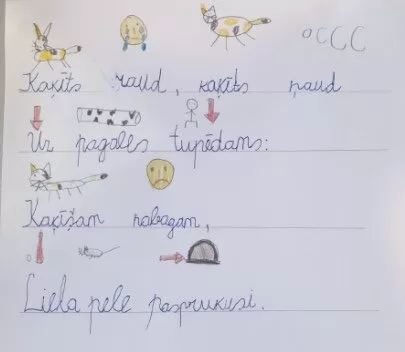 Kaķīts raud, kaķīts ņaud
Uz pagales tupēdams:
Kaķīšam nabagam,
Liela pele pasprukusi.